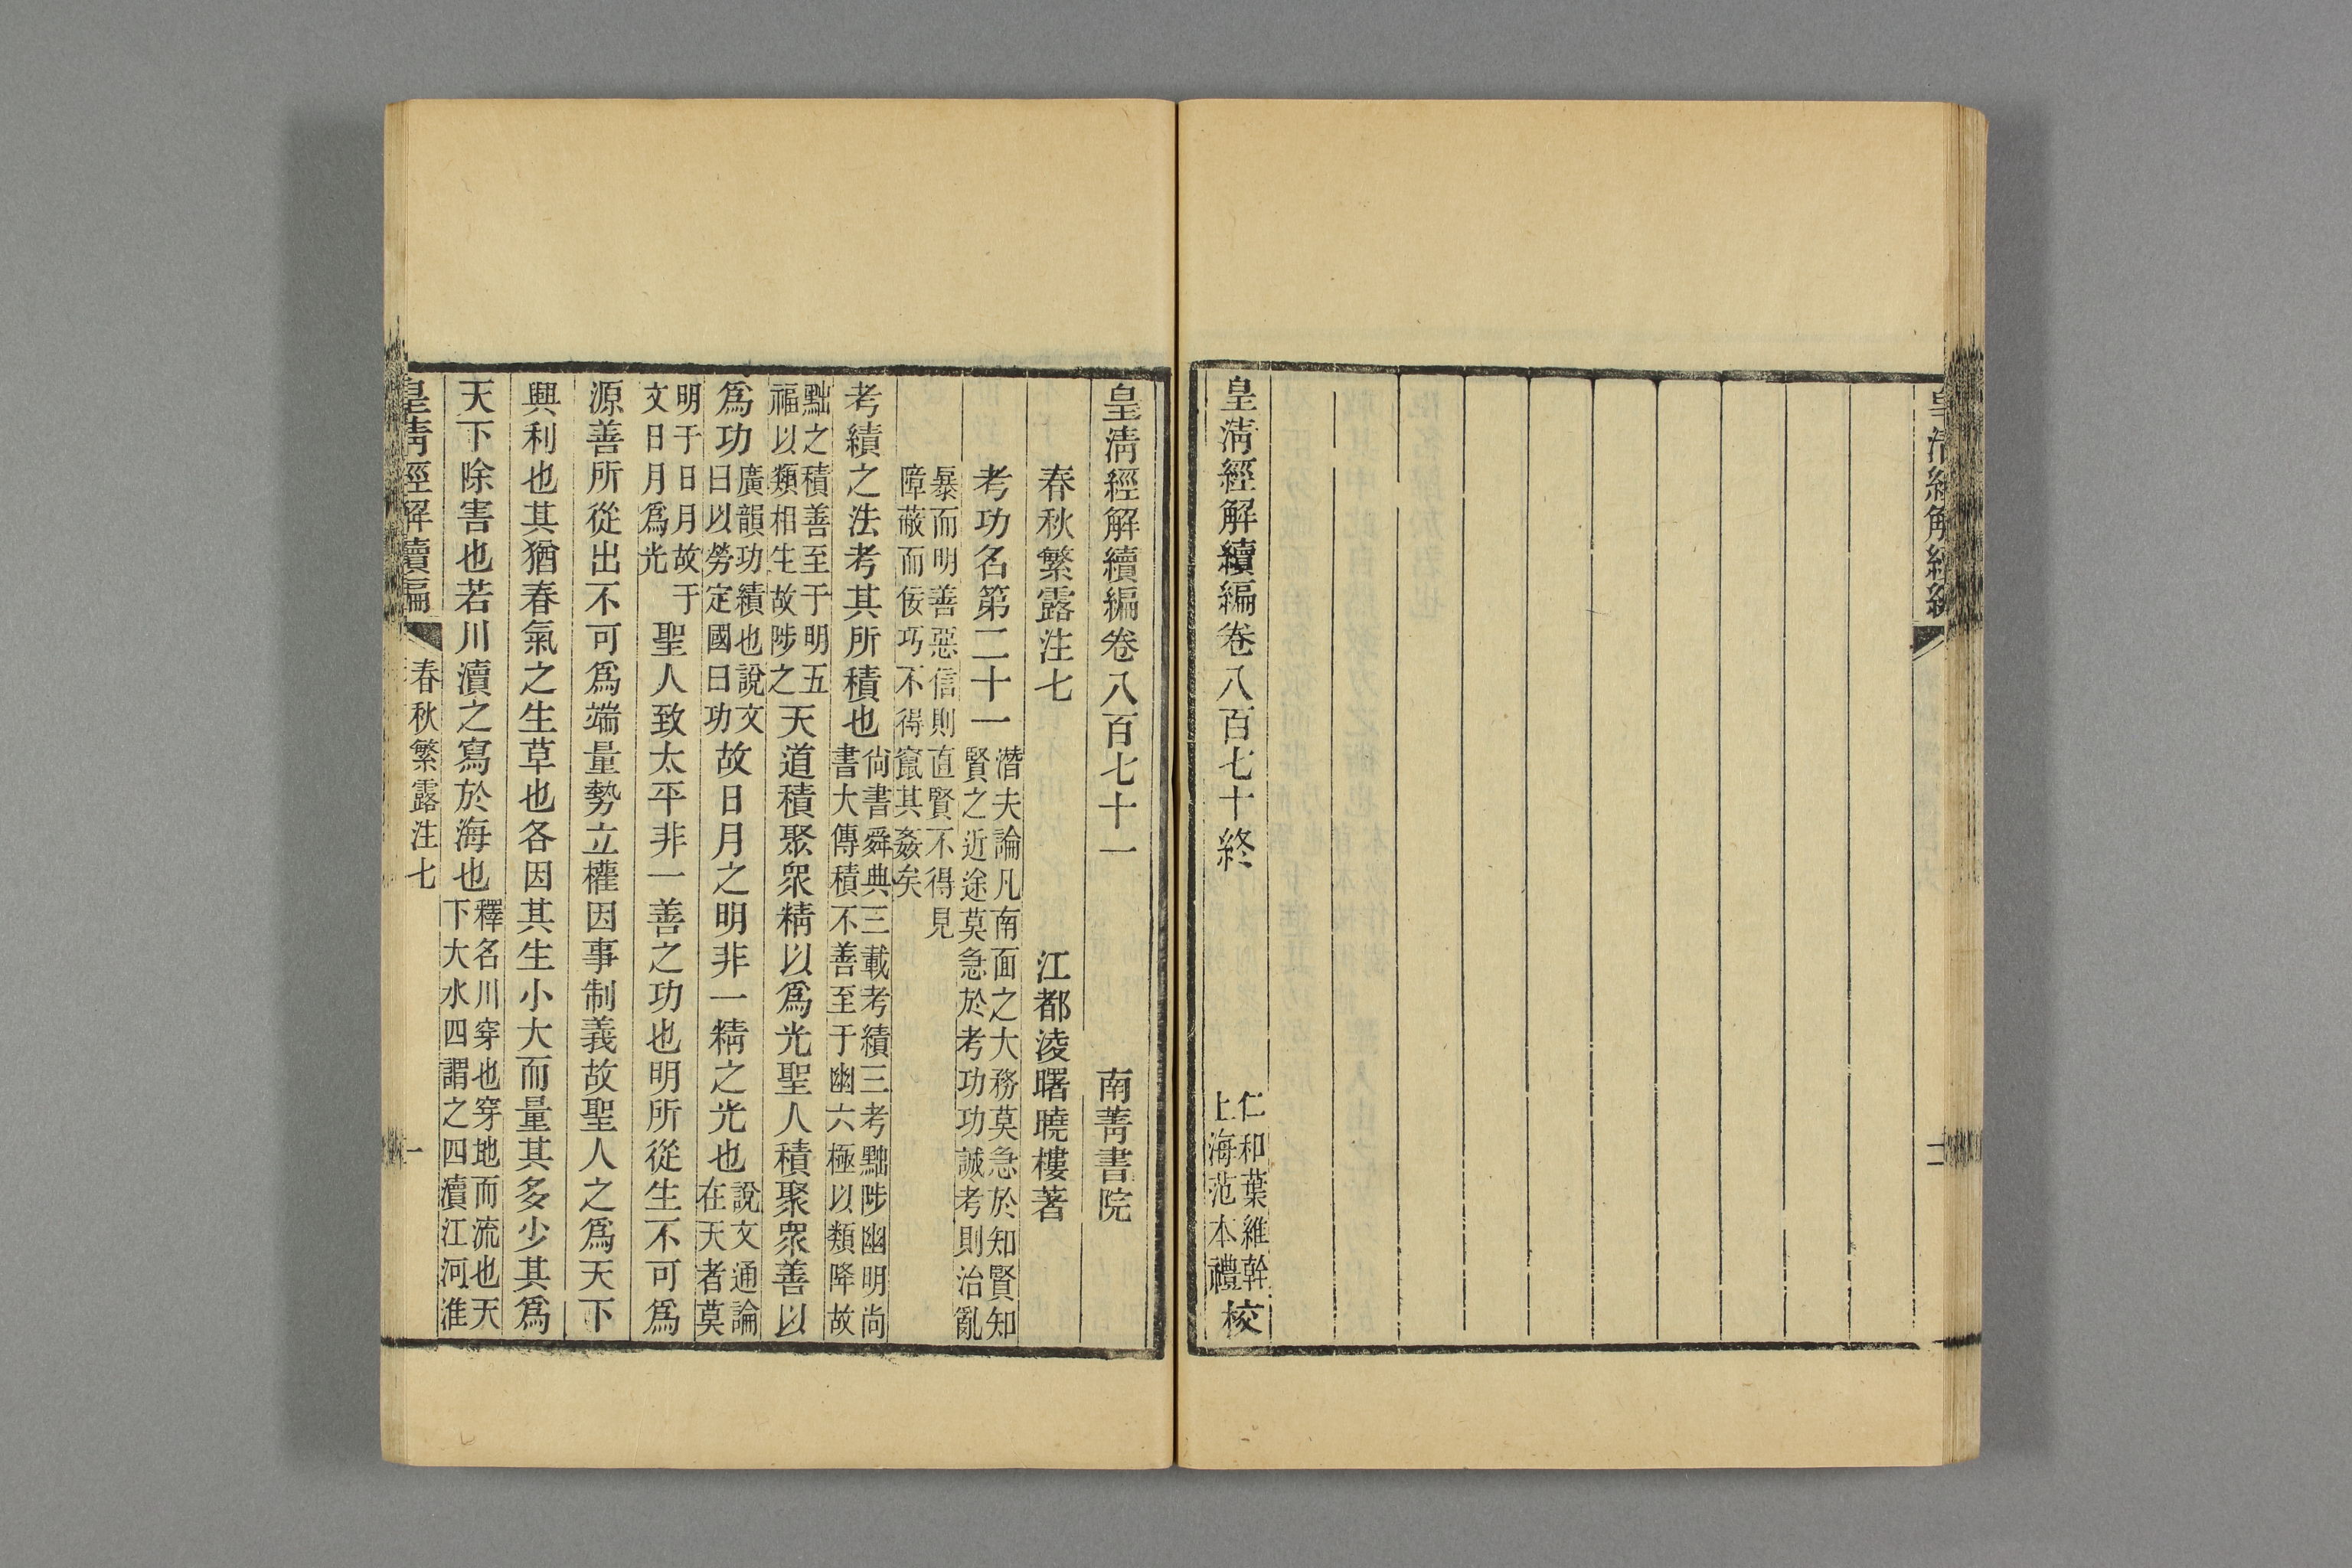 皇清經解續編
二
皇清經解續編卷八百七十終
仁和葉維幹
上海范本禮
校
皇清經解續編卷八百七十一
南菁書院
春秋繁露注七
江都淩曙曉樓著
考功名第二十一
潛夫論凡南面之大務莫急於知賢知
賢之近途莫急於考功功誠考則治亂
暴而明善惡信則直賢不得見
障蔽而佞巧不得竄其姦矣
考績之法考其所積也
尙書舜典三載考績三考黜陟幽明尚
書大傳積不善至于幽六極以類降故
黜之積善至于明五
福以類相生故陟之
天道積聚眾精以爲光聖人積聚眾善以
爲功
廣韻功績也說文
曰以勞定國曰功
故日月之明非一精之光也
說文通論
在天者莫
明于日月故于
文日月爲光
聖人致太平非一善之功也明所從生不可爲
源善所從出不可爲端量勢立權因事制義故聖人之爲天下
興利也其猶春氣之生草也各因其生小大而量其多少其爲
天下除害也若川瀆之寫於海也
釋名川穿也穿地而流也天
下大水四謂之四瀆江河淮
皇清經解續編
春秋繁露注七
一